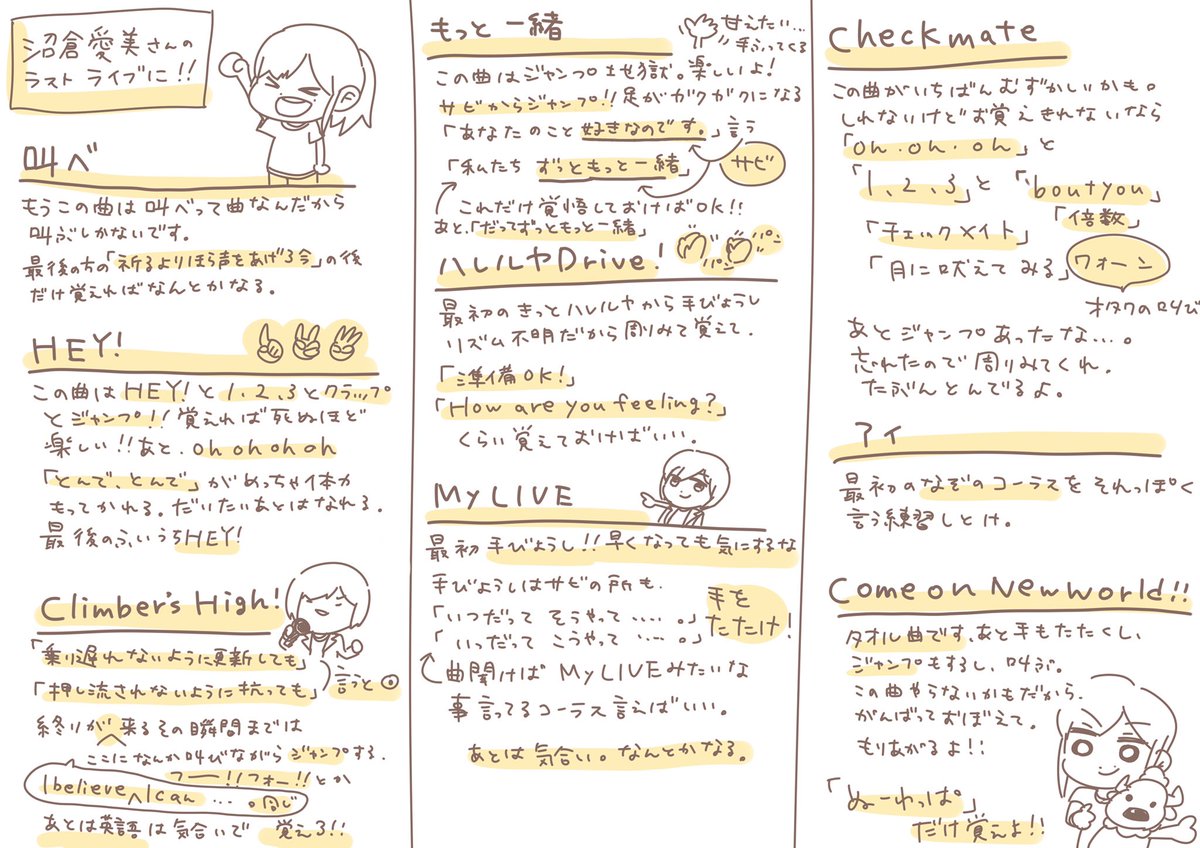 沼倉愛美さんの
ラストライブに!!
叫べ
もうこの曲は叫べって曲なんだから
叫ぶしかないです。
最後の方の「祈るよりほら声をあげろ今」の後
だけ覚えればなんとかなる。
HEY!
この曲はHEY!と1、2、3とクラップ
とジャンプ!!覚えれば死ぬほど
楽しい!!あと、oh oh oh oh
「とんで、とんで」がめっちゃ体力
もってかれる。だいたいあとはなれる。
最後のふいうちHEY!
Climber's High!
「乗り遅れないように更新しても」
「押し流されないように抗っても」
言うと◎
終りが 来るその瞬間までは
ここになんか叫びながらジャンプする。
フー!!フォー!!とか
I believe I can ‥‥。同じ
あとは英語は気合いで 覚えろ!!
もっと一緒
甘えたい…
手ふってくる
この曲はジャンプ地獄。楽しいよ!
サビからジャンプ!!足がガクガクになる
「あなたのこと 好きなのです。」言う
「私たち ずっともっと一緒」
サビ
これだけ覚悟しておけばOK!!
あと、「だってずっともっと一緒」
ハレルヤDrive!
パン
パン
最初のきっとハレルヤから手びょうし
リズム不明だから周りみて覚えて。
「準備OK!」
「How are you feeling?」
くらい覚えておけばいい。
My LIVE
最初 手びょうし!!早くなっても気にするな
手びょうしはサビの所も、
「いつだって そうやって ‥‥。」
「いつだって こうやって ‥‥。」
手を
たたけ!
曲聞けば My LIVEみたいな
事言ってるコーラス言えばいい。
あとは気合い。なんとかなる。
Checkmate
この曲がいちばんむずかしいかも。
しれないけどお覚えきれないなら
「oh.oh.oh」と
「1、2、3」と「'bout you」
「チェックメイト」
「倍数」
「月に吠えてみる」
ワォーン
オタクの叫び
あとジャンプあったな…。
忘れたので周りみてくれ。
たぶんとんでるよ。
アイ
最初のなぞのコーラスをそれっぽく
言う練習しとけ。
Come on New world!!
タオル曲です、あと手もたたくし、
ジャンプもするし、叫ぶ。
この曲やらないかもだから、
がんばっておぼえて。
もりあがるよ!!
「ぬーわっぱ」
だけ覚えよ!!